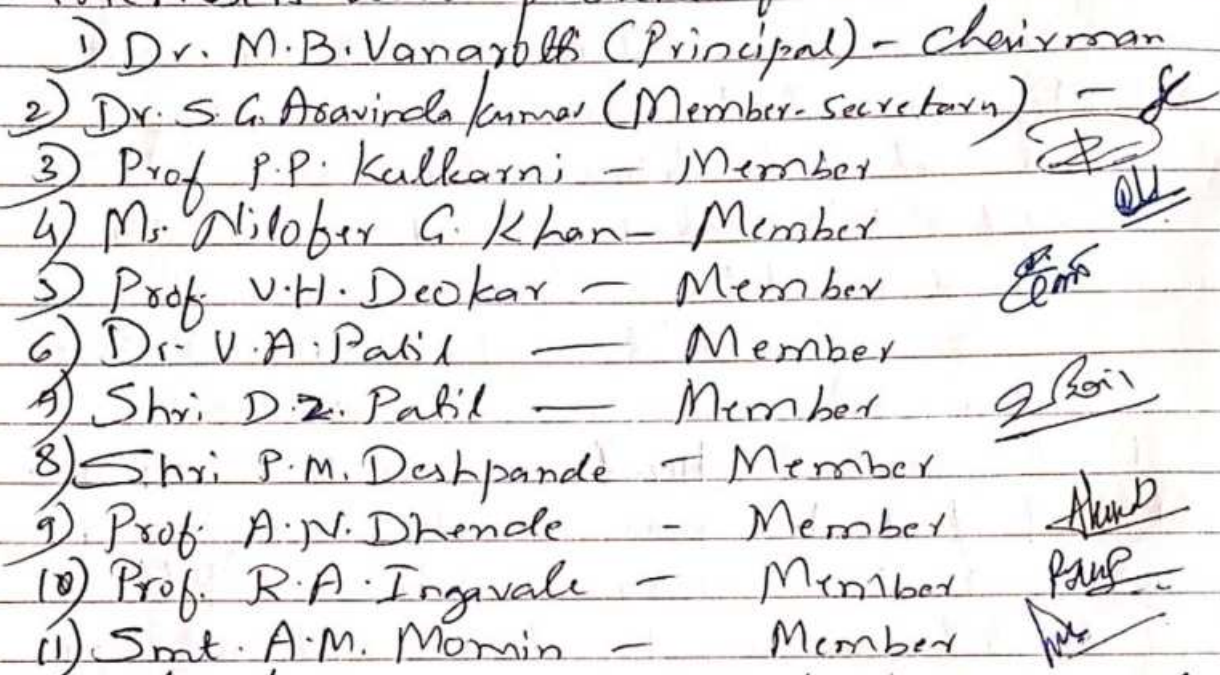 1) Dr. M.B. Vanarotti (Principal) - Chairman
2) Dr. S. G. Aravinda kumar (Member-Secretary) -
3) Prof P.P. Kulkarni - Member
4) Ms. Nilofer G. Khan - Member
5) Prof. V.H. Deokar - Member
6) Dr. V.A. Patil — Member
7) Shri. D.Z. Patil — Member
8) Shri P.M. Deshpande - Member
9) Prof. A.N. Dhende - Member
10) Prof. R.A. Ingavale - Member
11) Smt. A.M. Momin - Member